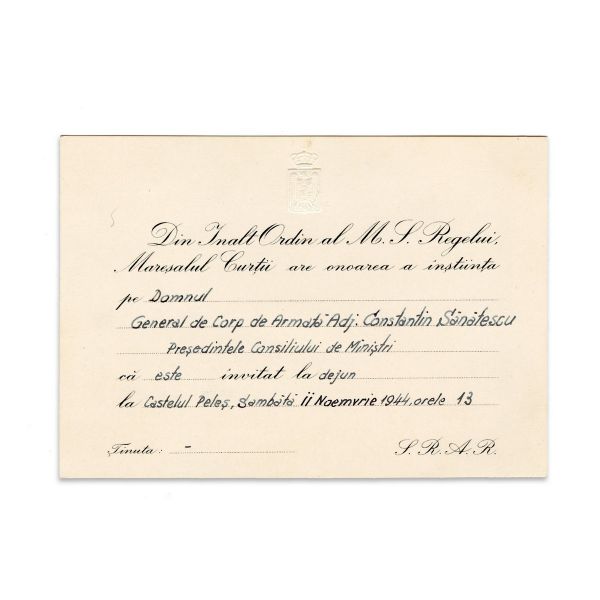 Din Inalt Ordin al M. S. Regelui,
Mareșalul Curții are onoarea a înștiința
pe Domnul
General de Corp de Armată Adj. Constantin Sănătescu
Președintele Consiliului de Miniștri
că este invitat la dejun
la Castelul Peleș, Sâmbătă 11 Noemvrie 1944, orele 13
Ținuta: - S. R. A. R.